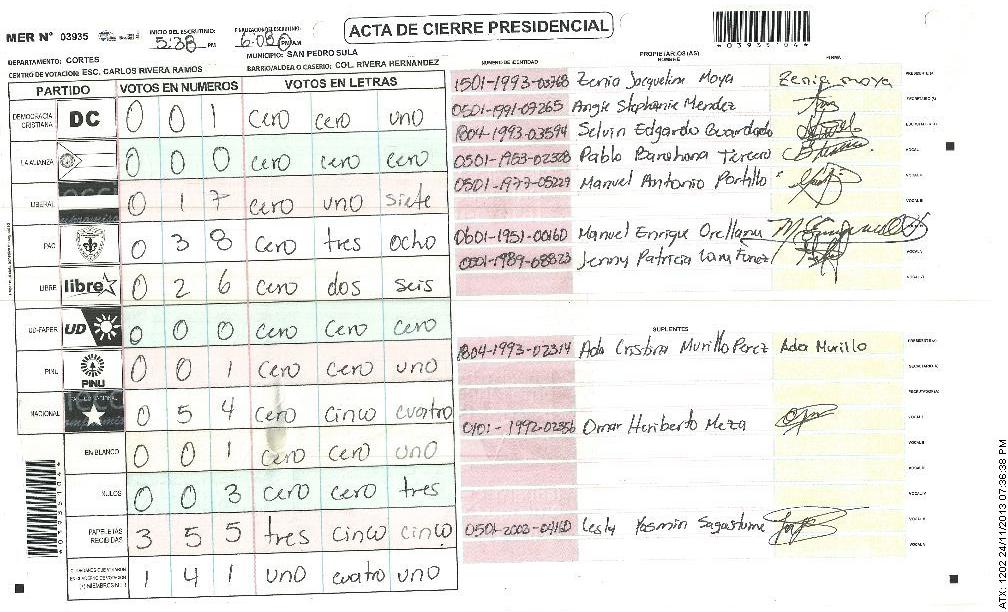 ACTA DE CIERRE PRESIDENCIAL
MER N° 03935
INICIO DEL ESCRUTINIO: 5:38 PM
FINALIZACION DEL ESCRUTINIO: 6:08 PM
DEPARTAMENTO: CORTES
MUNICIPIO: SAN PEDRO SULA
CENTRO DE VOTACION: ESC. CARLOS RIVERA RAMOS
BARRIO/ALDEA O CASERIO: COL. RIVERA HERNANDEZ
PARTIDO VOTOS EN NUMEROS VOTOS EN LETRAS
DEMOCRACIA CRISTIANA DC 0 0 1 cero cero uno
LA ALIANZA 0 0 0 cero cero cero
LIBERAL 0 1 7 cero uno siete
PAC 0 3 8 cero tres ocho
LIBRE libre 0 2 6 cero dos seis
UD-FAPER UD 0 0 0 cero cero cero
PINU PINU 0 0 1 cero cero uno
NACIONAL 0 5 4 cero cinco cuatro
EN BLANCO 0 0 1 cero cero uno
NULOS 0 0 3 cero cero tres
PAPELETAS RECIBIDAS 3 5 5 tres cinco cinco
1 4 1 uno cuatro uno
*03935104*
PROPIETARIOS(AS)
NUMERO DE IDENTIDAD NOMBRE FIRMA
1501-1993-03768 Zenia Jacqueline Moya Zenia moya PRESIDENTE(A)
0501-1991-07265 Angie Stephanie Mendez SECRETARIO(A)
1804-1993-03594 Selvin Edgardo Guardado ESCRUTADOR(A)
0501-1953-02328 Pablo Barahona Tercero VOCAL I
0501-1977-05229 Manuel Antonio Portillo VOCAL II
VOCAL III
0601-1951-00160 Manuel Enrique Orellana VOCAL IV
0501-1989-08823 Jenny Patricia Lara Funez VOCAL V
VOCAL VI
SUPLENTES
1804-1993-02314 Ada Cristina Murillo Perez Ada Murillo PRESIDENTE(A)
SECRETARIO(A)
ESCRUTADOR(A)
0101-1992-02356 Omar Heriberto Meza VOCAL I
VOCAL II
VOCAL III
VOCAL IV
0501-2003-04160 Lesly Yasmin Sagastume VOCAL V
VOCAL VI
*03935104*
ATX: 1202 24/11/2013 07:36:38 PM